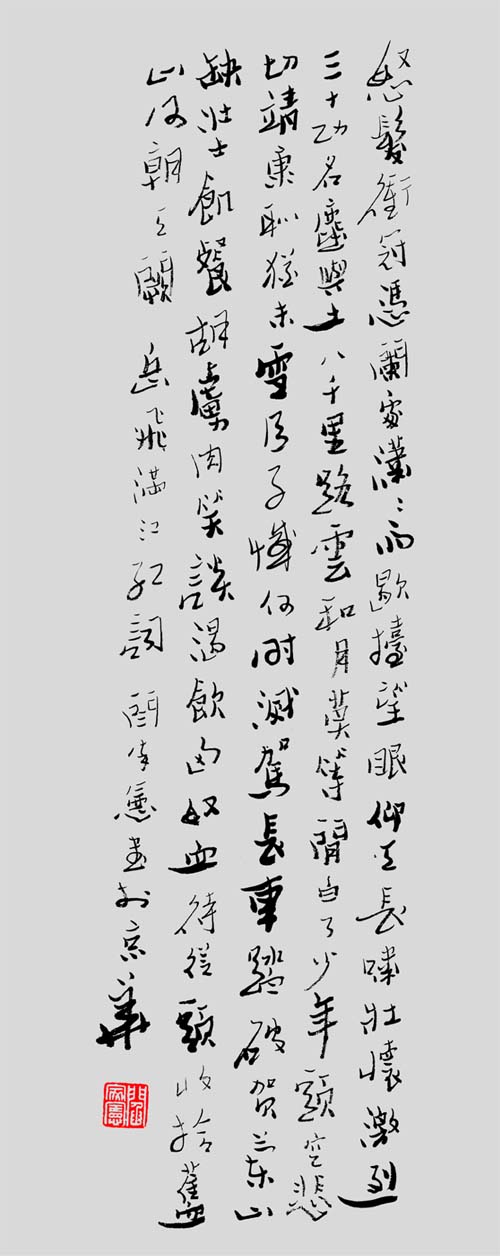 怒髮衝冠憑闌處瀟〻雨歇擡望眼仰天長嘯壯懷激烈
三十功名塵與土八千里路雲和月莫等閒白了少年頭空悲
切靖康恥猶未雪臣子憾何时滅駕長車踏破賀蘭山
缺壯士飢餐胡虜肉笑談渴飲匈奴血待從頭收拾舊
山河朝天闕 岳飛滿江紅詞 閻家憲書於京華
閻家憲